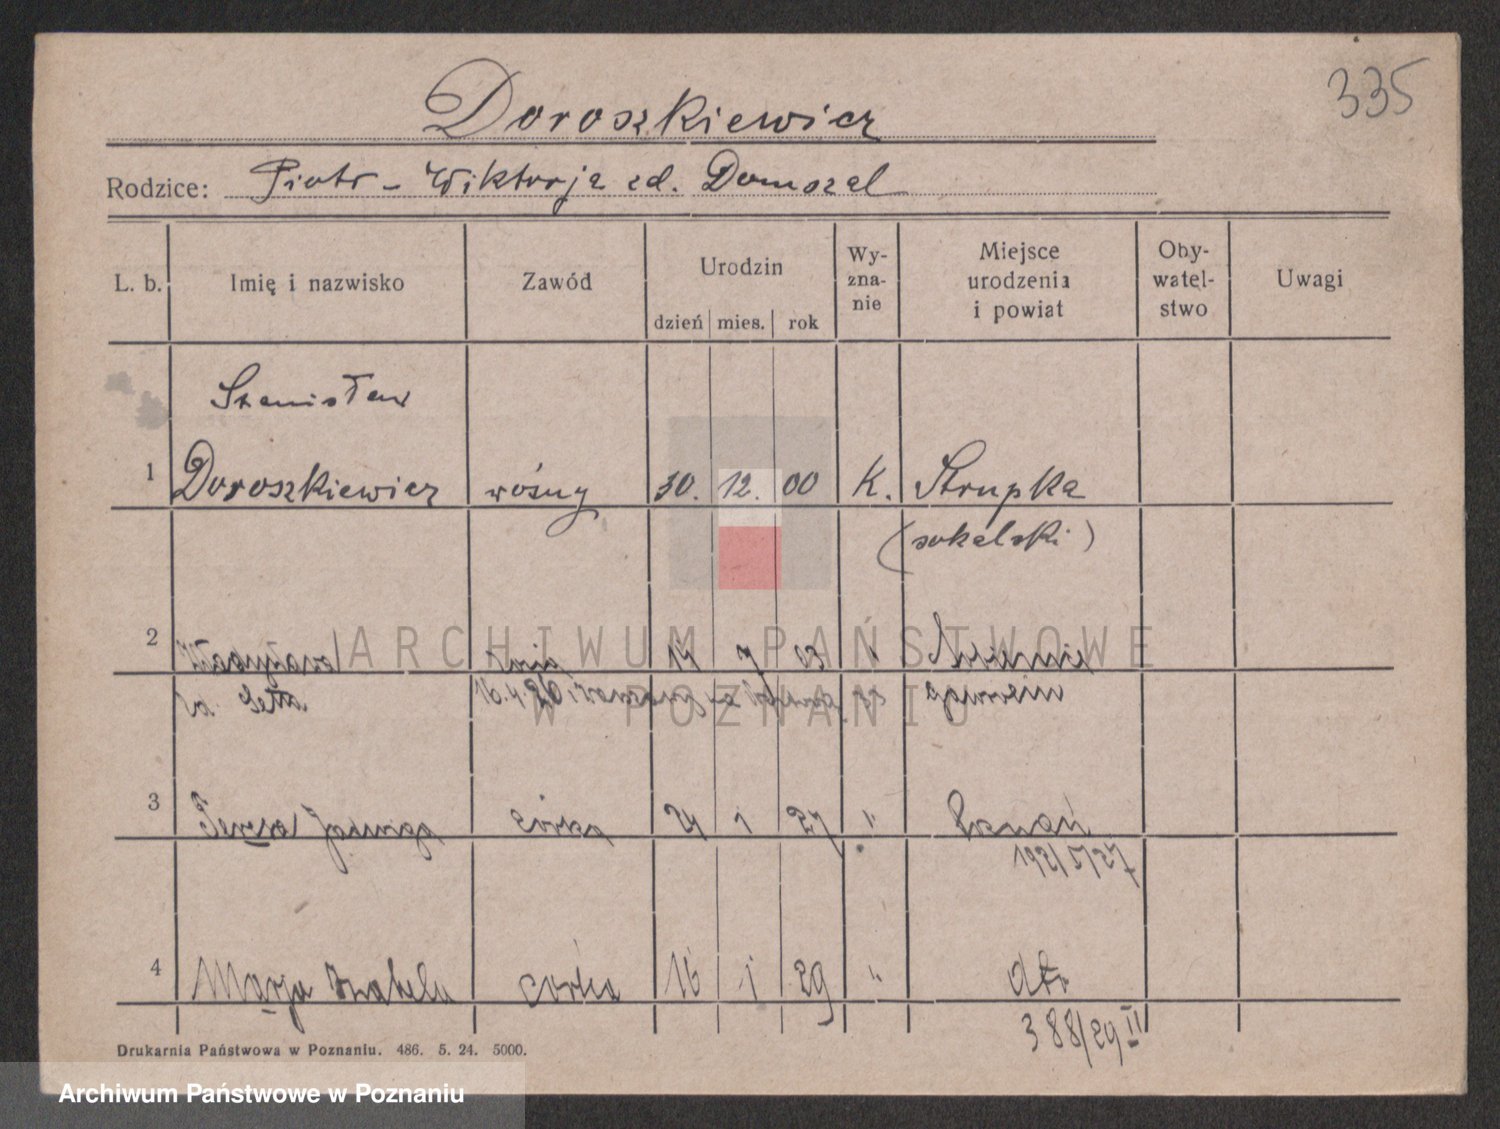 335
Doroszkiewicz
Rodzice: Piotr - Wiktorja zd. Domszal
L. b. Imię i nazwisko Zawód Urodzin dzień mies. rok Wy-zna-nie Miejsce urodzenia i powiat Oby-watel-stwo Uwagi
Stanisław
1 Doroszkiewicz woźny 30. 12. 00 K. Strupka
(sokalski)
2 Władysława żona 14 7 03 "
zd. Setta 16.4.26
3 Teresa Jadwiga córka 24 1 27 " Poznań
192/I/27
4 Marja Izabela córka 16 1 29 " dto
388/29 II
Drukarnia Państwowa w Poznaniu. 486. 5. 24. 5000.
ARCHIWUM PAŃSTWOWE
W POZNANIU
Archiwum Państwowe w Poznaniu